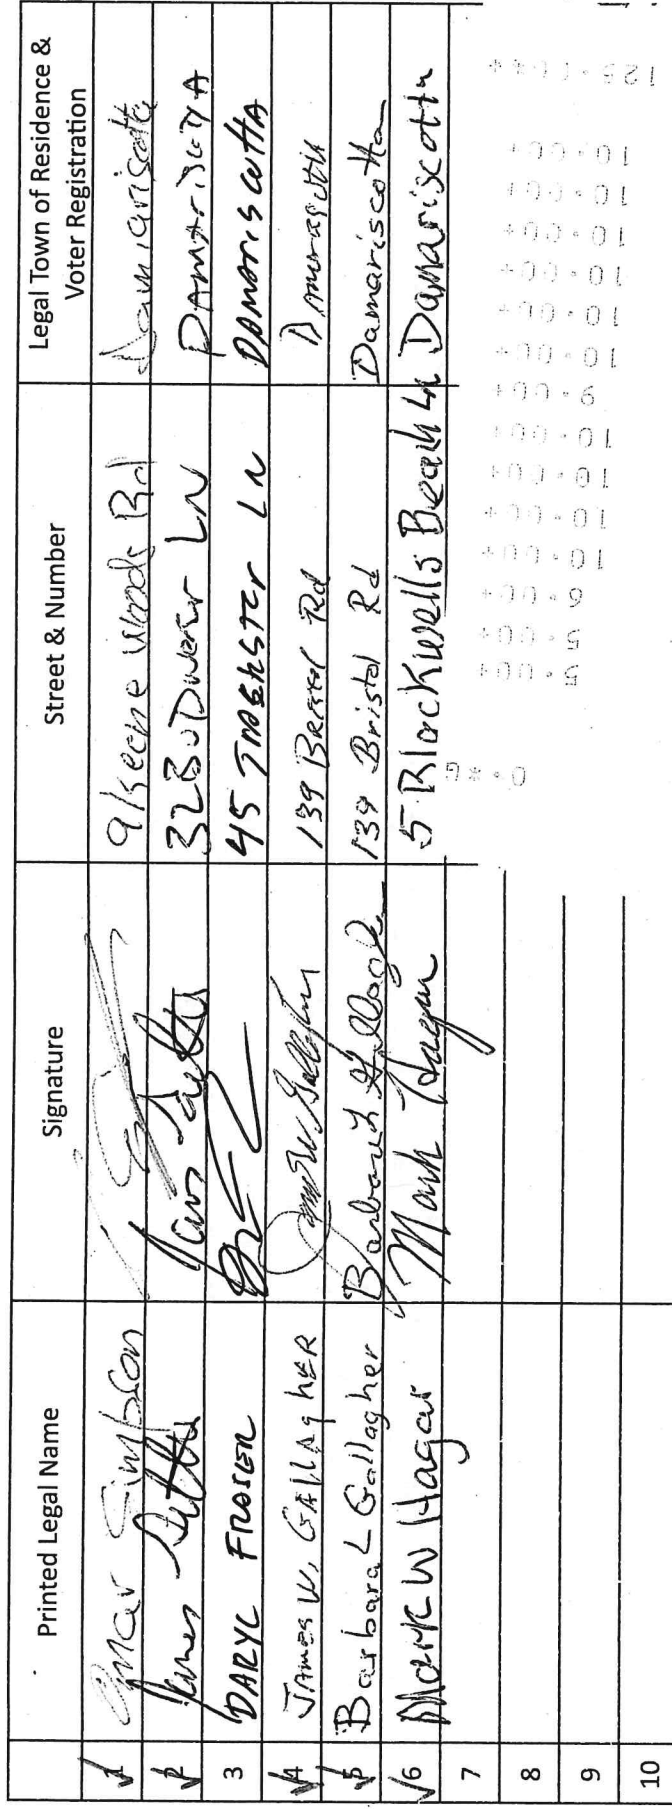 Printed Legal Name Signature Street & Number Legal Town of Residence & Voter Registration
1 Omar Simpson 9 Keene Woods Rd Damariscotta
2 James 32 LN DAMARISCOTTA
3 DARYL FRASER 45 LN DAMARISCOTTA
4 JAMES W. GALLAGHER James W Gallagher 139 Bristol Rd Damariscotta
5 Barbara L Gallagher Barbara L Gallagher 139 Bristol Rd Damariscotta
6 Mark W Hagar Mark Hagar 5 Blackwells Beach Ln Damariscotta
7
8
9
10
0·*G
5·00+
5·00+
6·00+
10·00+
10·00+
10·00+
10·00+
9·00+
10·00+
10·00+
10·00+
10·00+
10·00+
10·00+